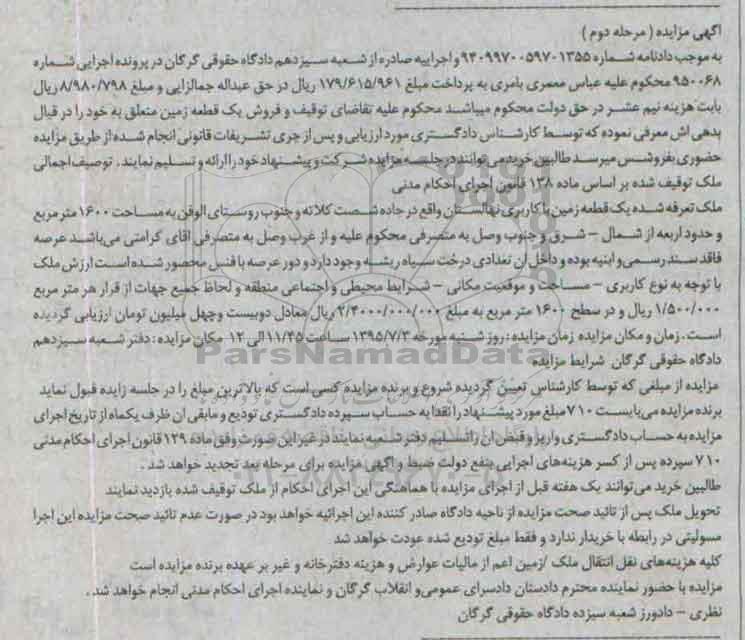 اگهی مزایده ( مرحله دوم )
به موجب دادنامه شماره ۹۴۰۹۹۷۰۰۵۹۷۰۱۳۵۵ و اجراییه صادره از شعبه سیزدهم دادگاه حقوقی گرگان در پرونده اجرایی شماره
۹۵۰۰۶۸ محکوم علیه عباس معمری بامری به پرداخت مبلغ ۱۷۹/۶۱۵/۹۶۱ ریال در حق عبداله جمالزایی و مبلغ ۸/۹۸۰/۷۹۸ ریال
بابت هزینه نیم عشر در حق دولت محکوم میباشد محکوم علیه تقاضای توقیف و فروش یک قطعه زمین متعلق به خود را در قبال
بدهی اش معرفی نموده که توسط کارشناس دادگستری مورد ارزیابی و پس از جری تشریفات قانونی انجام شده از طریق مزایده
حضوری بفروشس میرسد طالبین خرید می توانند در جلسه مزایده شرکت و پیشنهاد خود را ارائه و تسلیم نمایند . توصیف اجمالی
ملک توقیف شده بر اساس ماده ۱۳۸ قانون اجرای احکام مدنی
ملک تعرفه شده یک قطعه زمین با کاربری نهالستان واقع در جاده شصت کلاته و جنوب روستای الوفن به مساحت ۱۶۰۰ متر مربع
و حدود اربعه از شمال – شرق و جنوب وصل به متصرفی محکوم علیه و از غرب وصل به متصرفی اقای گرامتی می‌باشد عرصه
فاقد سند رسمی و ابنیه بوده و داخل آن تعدادی درخت سیاه ریشه وجود دارد و دور عرصه با فنس محصور شده است ارزش ملک
با توجه به نوع کاربری – مساحت و موقعیت مکانی – شرایط محیطی و اجتماعی منطقه و لحاظ جمیع جهات از قرار هر متر مربع
۱/۵۰۰/۰۰۰ ریال و در سطح ۱۶۰۰ متر مربع به مبلغ ۲/۴۰۰۰/۰۰۰/۰۰۰ ریال معادل دویست وچهل میلیون تومان ارزیابی گردیده
است . زمان و مکان مزایده زمان مزایده : روز شنبه مورخه ۱۳۹۵/۷/۳ ساعت ۱۱/۴۵ الی ۱۲ مکان مزایده : دفتر شعبه سیزدهم
دادگاه حقوقی گرگان شرایط مزایده
ParsNamadData
مزایده از مبلغی که توسط کارشناس تعیین گردیده شروع و برنده مزایده کسی است که بالاترین مبلغ را در جلسه زایده قبول نماید
برنده مزایده می‌بایست ۷۱۰ مبلغ مورد پیشنهاد را نقدا به حساب سپرده دادگستری تودیع و مابقی ان ظرف یکماه از تاریخ اجرای
مزایده به حساب دادگستری واریز و قبض ان را تسلیم دفتر شعبه نمایند در غیر این صورت وفق ماده ۱۲۹ قانون اجرای احکام مدنی
۷۱۰ سپرده پس از کسر هزینه‌های اجرایی بنفع دولت ضبط و اگهی مزایده برای مرحله بعد تجدید خواهد شد .
طالبین خرید می‌توانند یک هفته قبل از اجرای مزایده با هماهنگی این اجرای احکام از ملک توقیف شده بازدید نمایند
تحویل ملک پس از تائید صحت مزایده از ناحیه دادگاه صادر کننده این اجرائیه خواهد بود در صورت عدم تائید صحت مزایده این اجرا
مسولیتی در رابطه با خریدار ندارد و فقط مبلغ تودیع شده عودت خواهد شد
کلیه هزینه‌های نقل انتقال ملک /زمین اعم از مالیات عوارض و هزینه دفترخانه و غیر بر عهده برنده مزایده است
مزایده با حضور نماینده محترم دادستان دادسرای عمومی و انقلاب گرگان و نماینده اجرای احکام مدنی انجام خواهد شد .
نظری – دادورز شعبه سیزده دادگاه حقوقی گرگان